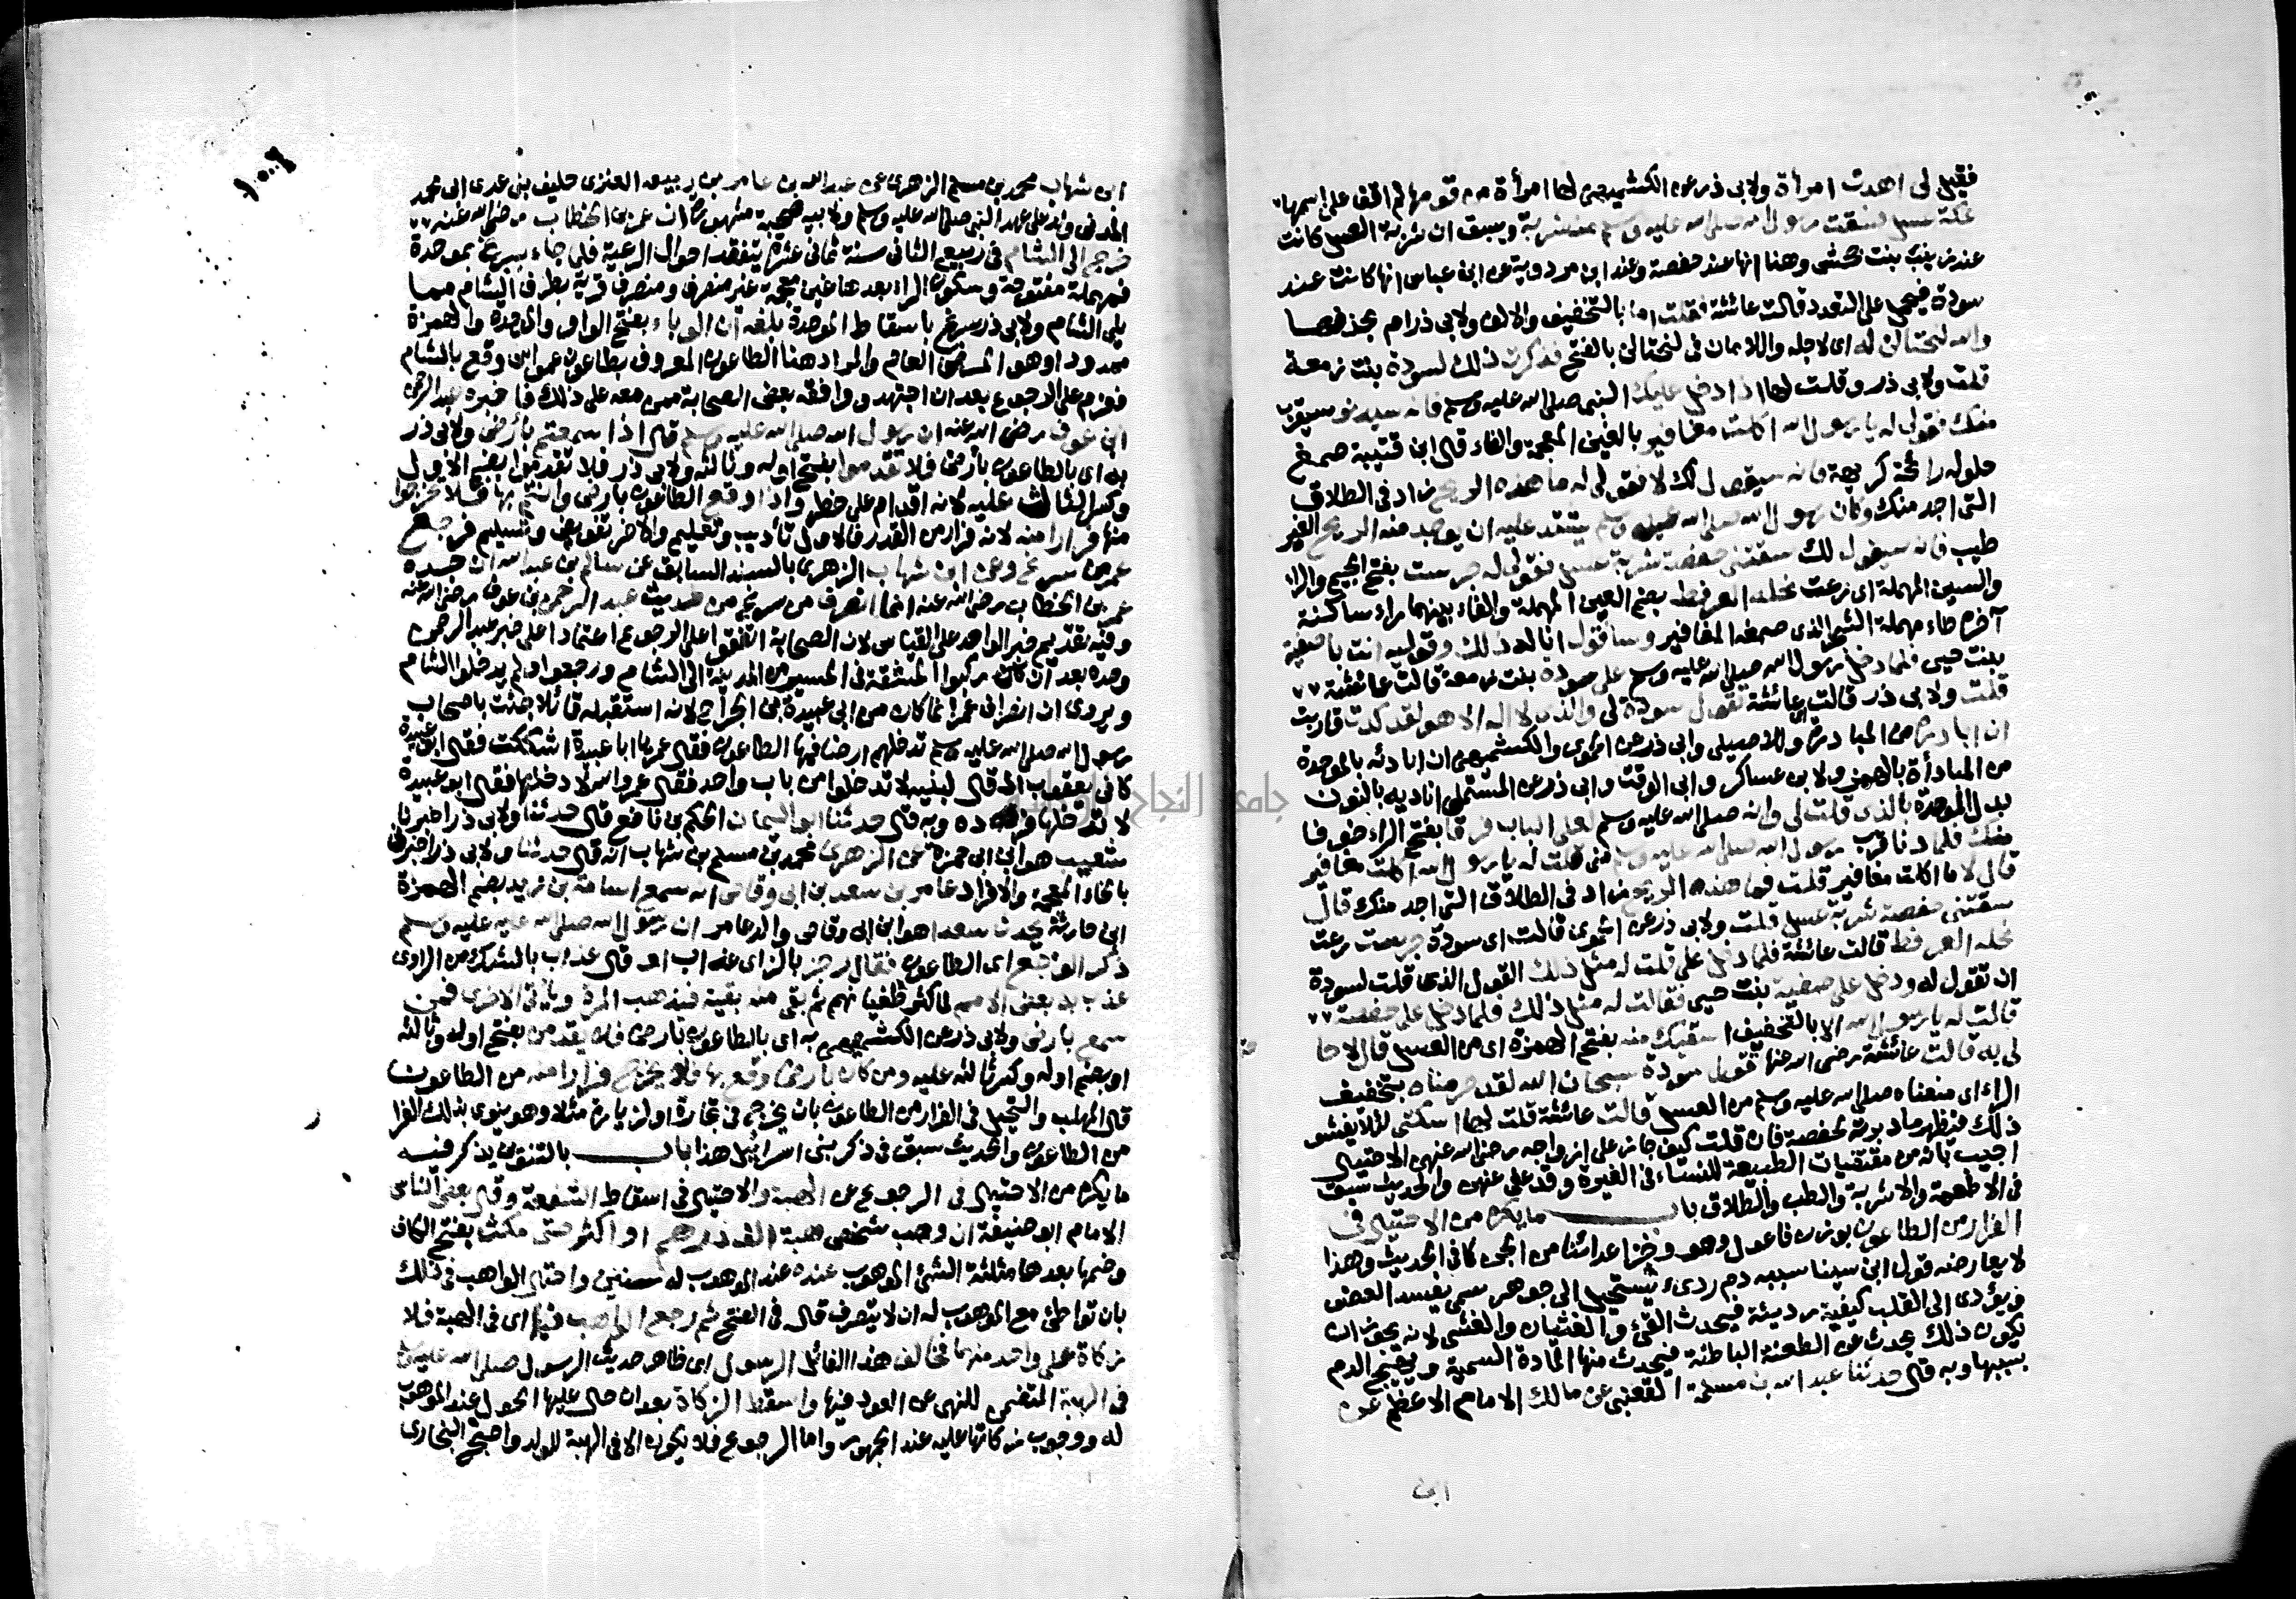 فقيل لي اهدت امرأة ولابي ذر عن الكشميهني لها امرأة من قومها لم اقف على اسمها
عكة عسل فسقت رسول الله صلى الله عليه وسلم منه شربة وسبق ان شربة العسل كانت
عند زينب بنت جحش وهنا انها عند حفصة وعند ابن مردويه عن ابن عباس انها كانت عند
سودة فيحمل على التعدد قالت عائشة فقلت اما بالتخفيف والالف ولابي ذر ام بحذفها
والله لنحتالن له اى لاجله واللامان في لنحتالن بالفتح فذكرت ذلك لسودة بنت زمعة
قلت ولابي ذر وقلت لها اذا دخل عليك النبي صلى الله عليه وسلم فانه سيدنو سيقرب
منك فقولي له يا رسول الله اكلت مغافير بالغين المعجمة والفاء قال ابن قتيبة صمغ
حلو له رائحة كريهة فانه سيقول لك لا فقولي له ما هذه الريح زاد في الطلاق
التي اجد منك وكان رسول الله صلى الله عليه وسلم يشتد عليه ان يوجد منه الريح الغير
طيب فانه سيقول لك سقتني حفصة شربة عسل فقولي له جرست بفتح الجيم والراء
والسين المهملة اى رعت نحله العرفط بضم العين المهملة والفاء بينهما راء ساكنة
آخره طاء مهملة الشجر الذى صمغه المغافير وساقول انا له ذلك وقوليه انت يا صفية
بنت حيي فلما دخل رسول الله صلى الله عليه وسلم على سودة بنت زمعة قالت عائشة
قلت ولابي ذر قالت اى عائشة تقول سودة لي والذي لا اله الا هو لقد كدت قاربت
ان ابادره من المبادرة وللاصيلي وابي ذر عن الحموي والكشميهني ان ابادئه بالموحدة
من المبادأة بالهمز ولابن عساكر وابي الوقت وابي ذر عن المستملي اناديه بالنون
بدل الموحدة بالذي قلت لي وانه صلى الله عليه وسلم لعلى الباب فرقا بفتح الراء خوفا
منك فلما دنا قرب رسول الله صلى الله عليه وسلم مني قلت له يا رسول الله اكلت مغافير
قال لا ما اكلت مغافير قلت فما هذه الريح زاد في الطلاق التي اجد منك قال
سقتني حفصة شربة عسل قلت ولابي ذر عن الحموي قالت اى سودة جرست رعت
نحله العرفط قالت عائشة فلما دخل علي قلت له مثل ذلك القول الذي قلت لسودة
ان تقول له ودخل على صفية بنت حيي فقالت له مثل ذلك فلما دخل على حفصة
قالت له يا رسول الله الا بالتخفيف اسقيك منه بفتح الهمزة اى من العسل قال لا حا
لي به قالت عائشة رضي الله عنها تقول سودة سبحان الله لقد حرمناه بتخفيف
الراء اى منعناه صلى الله عليه وسلم من العسل قالت عائشة قلت لها اسكتي لئلا يفشو
ذلك فيظهر ما دبرته لحفصة فان قلت كيف جاز على ازواجه رضي الله عنهن الاحتيال
اجيب بانه من مقتضيات الطبيعة للنساء في الغيرة وقد عفي عنهن والحديث سبق
في الاطعمة والاشربة والطب والطلاق باب ما يكره من الاحتيال في
الفرار من الطاعون بوزن فاعول وهو وخز اعدائنا من الجن كما في الحديث وهذا
لا يعارضه قول ابن سينا سببه دم ردىء يستحيل الى جوهر سمي يفسد العضو
ويؤدي الى القلب كيفية رديئة فيحدث القيء والغثيان والغشي لانه يجوز ان
يكون ذلك يحدث عن الطعنة الباطنة فيحدث منها المادة السمية ويهيج الدم
بسببها وبه قال حدثنا عبد الله بن مسلمة القعنبي عن مالك الامام الاعظم عن
ابن
ابن شهاب محمد بن مسلم الزهري عن عبد الله بن عامر بن ربيعة العنزي حليف بني عدى ابي محمد
المدني ولد على عهد النبي صلى الله عليه وسلم ولابيه صحبة مشهورة ان عمر بن الخطاب رضي الله عنه
خرج الى الشام في ربيع الثاني سنة ثماني عشرة يتفقد احوال الرعية فلما جاء بسرغ بموحدة
فمهملة مفتوحة وسكون الراء بعدها غين معجمة غير منصرف ومنصرف قرية بطرف الشام مما
يلي الشام ولابي ذر سرغ باسقاط الموحدة بلغه ان الوباء بفتح الواو والموحدة والهمزة
ممدودا وهو المرض العام والمراد هنا الطاعون المعروف بطاعون عمواس وقع بالشام
فعزم على الرجوع بعد ان اجتهد ووافقه بعض الصحابة ممن معه على ذلك فاخبره عبد الرحمن
ابن عوف رضي الله عنه ان رسول الله صلى الله عليه وسلم قال اذا سمعتم بأرض ولابي ذر
به اى بالطاعون بأرض فلا تقدموا بفتح اوله وثالثه ولابي ذر فلا تقدموا بضم الاول
وكسر الثالث عليه لانه اقدام على خطر واذا وقع الطاعون بارض وانتم بها فلا تخرجوا
منها فرارا منه لانه فرار من القدر فالاول تأديب وتعليم والاخر تفويض وتسليم فرجع
عمر من سرغ وعن ابن شهاب الزهري بالسند السابق عن سالم بن عبد الله ان جده
عمر بن الخطاب رضي الله عنه انما انصرف من سرغ من حديث عبد الرحمن بن عوف رضي الله عنه
وفيه تقديم خبر الواحد على القياس لان الصحابة اتفقوا على الرجوع اعتمادا على خبر عبد الرحمن
وحده بعد ان كانوا ركبوا المشقة في المسير من المدينة الى الشام ورجعوا ولم يدخلوا الشام
ويروى ان انصراف عمر انما كان من ابي عبيدة بن الجراح لانه استقبله قائلا جئت باصحاب
رسول الله صلى الله عليه وسلم تدخلهم ارضا فيها الطاعون فقال عمر يا ابا عبيدة اشككت فقال ابو عبيدة
كاني يعقوب اذ قال لبنيه لا تدخلوا من باب واحد فقال عمر والله لا دخلنها فقال ابو عبيدة
لا تدخلها فرده وبه قال حدثنا ابو اليمان الحكم بن نافع قال حدثنا ولابي ذر اخبرنا
شعيب هو ابن ابي حمزة عن الزهري محمد بن مسلم بن شهاب انه قال حدثنا ولابي ذر اخبرني
بالخاء المعجمة والافراد عامر بن سعد بن ابي وقاص انه سمع اسامة بن زيد بضم الهمزة
ابن حارثة يحدث سعدا هو ابن ابي وقاص والد عامر ان رسول الله صلى الله عليه وسلم
ذكر الوجع اى الطاعون فقال رجز بالزاى عذاب او قال عذاب بالشك من الراوى
عذب به بعض الامم لما كثر طغيانهم ثم بقي منه بقية فيذهب المرة ويأتي الاخرى فمن
سمع بارض ولابي ذر عن الكشميهني به اى بالطاعون بارض فلا يقدمن بفتح اوله وثالثه
او بضم اوله وكسر ثالثه عليه ومن كان بارض وقع بها فلا يخرج فرارا منه من الطاعون
قال المهلب والتحيل في الفرار من الطاعون بان يخرج في تجارة او لزيارة مثلا وهو ينوى بذلك الفرار
من الطاعون والحديث سبق في ذكر بني اسرائيل هذا باب بالتنوين يذكر فيه
ما يكره من الاحتيال في الرجوع عن الهبة والاحتيال في اسقاط الشفعة وقال بعض الناس
الامام ابو حنيفة ان وهب شخص هبة الف درهم او اكثر حتى مكث بفتح الكاف
وضمها بعدها مثلثة الشئ الموهوب عنده عند الموهوب له سنين واحتال الواهب في ذلك
بان تواطئ مع الموهوب له ان لا يتصرف قاله في الفتح ثم رجع الواهب فيها اى في الهبة فلا
زكاة على واحد منهما فخالف هذا القائل الرسول اى ظاهر حديث الرسول صلى الله عليه وسلم
في الهبة المتضمن للنهي عن العود فيها واسقط الزكاة بعد ان حال عليها الحول عند الموهوب
له ووجوب زكاتها عليه عند الجمهور واما الرجوع فلا يكون الا في الهبة للولد واحتج البخاري